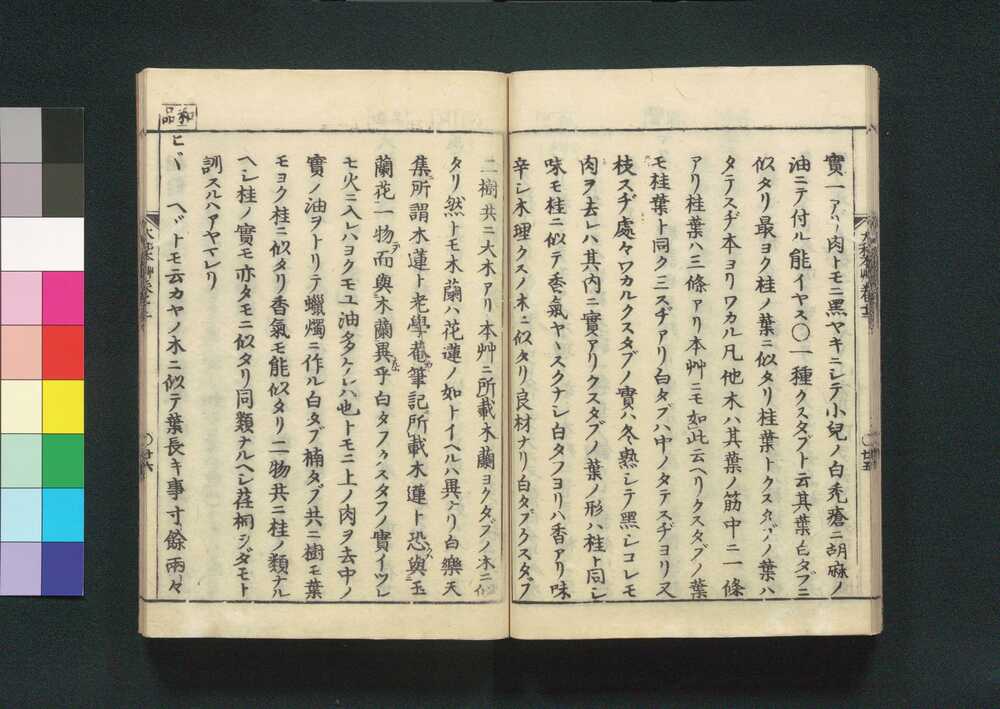 實一アリ肉トモニ黑ヤキニシテ小兒ノ白禿瘡ニ胡麻ノ
油ニテ付ル能イヤス〇一種クスタブト云其葉白タブニ
似タリ最ヨク桂ノ葉ニ似タリ桂葉トクスタブノ葉ハ
タテスヂ本ヨリワカル凡他木ハ其葉ノ筋中ニ一條
アリ桂葉ハ三條アリ本艸ニモ如此云ヘリクスタブノ葉
モ桂葉ト同ク三スヂアリ白タブハ中ノタテスヂヨリ又
枝スヂ處々ワカルクスタブノ實ハ冬熟シテ黑シコレモ
肉ヲ去レハ其内ニ實アリクスタブノ葉ノ形ハ桂ト同シ
味モ桂ニ似テ香氣ヤヽスクナシ白タフヨリハ香アリ味
辛シ木理クスノ木ニ似タリ良材ナリ白タブクスタブ
廿五
二樹共ニ大木アリ本艸ニ所載木蘭ヨクタブノ木ニ似
タリ然トモ木蘭ハ花蓮ノ如トイヘルハ異ナリ白樂天
集所謂木蓮ト老學菴筆記所載木蓮ト恐與玉
蘭花一物而與木蘭異乎白タフクスタフノ實イツレ
モ火ニ入レハヨクモユ油多ケレハ也トモニ上ノ肉ヲ去中ノ
實ノ油ヲトリテ蠟燭ニ作ル白タブ楠タブ共ニ樹モ葉
モヨク桂ニ似タリ香氣モ能似タリ二物共ニ桂ノ類ナル
ヘシ桂ノ實モ亦タモニ似タリ同類ナルヘシ荏桐ヲダモト
訓スルハアヤマレリ
和品
ヒバ ヘバトモ云カヤノ木ニ似テ葉長キ事寸餘兩々
廿六